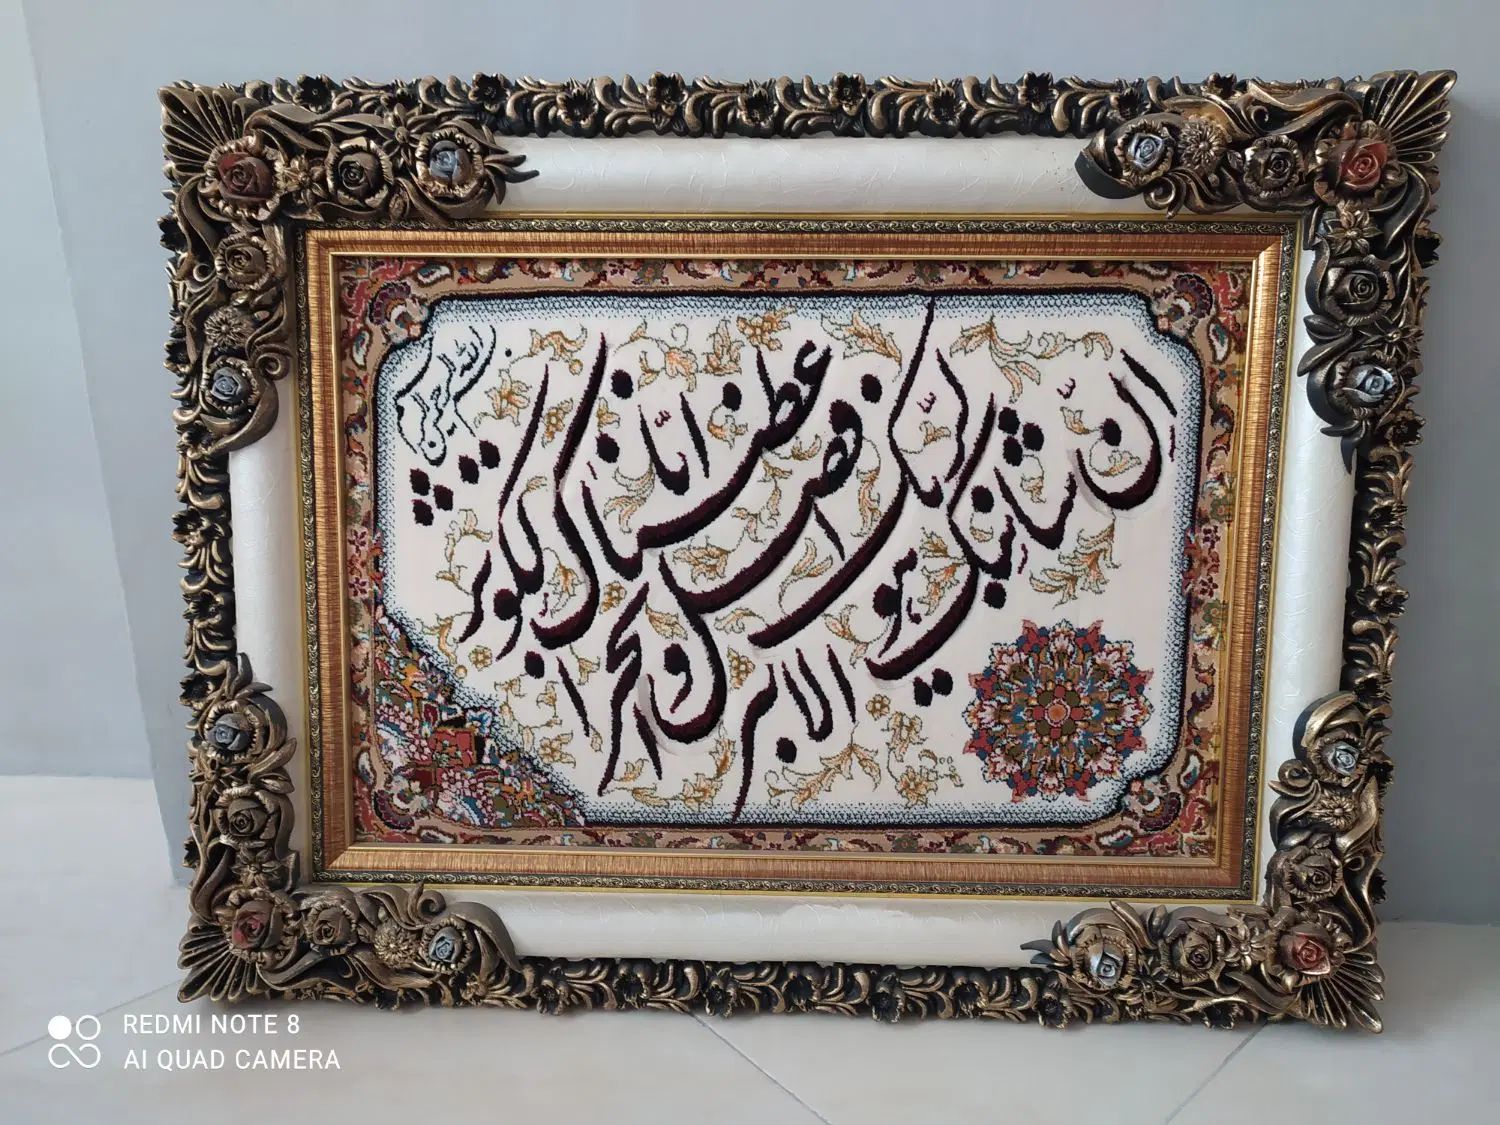 بسم الله الرحمن الرحیم
انا اعطیناک الکوثر
فصل لربک وانحر
ان شانئک هو الابتر
REDMI NOTE 8
AI QUAD CAMERA